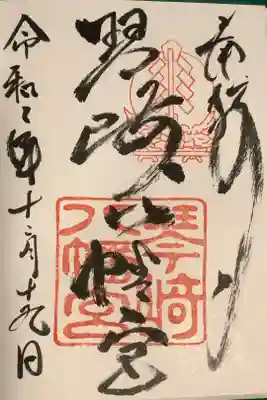 奉拝
琴崎八幡宮
琴崎八幡宮
令和二年十二月十九日